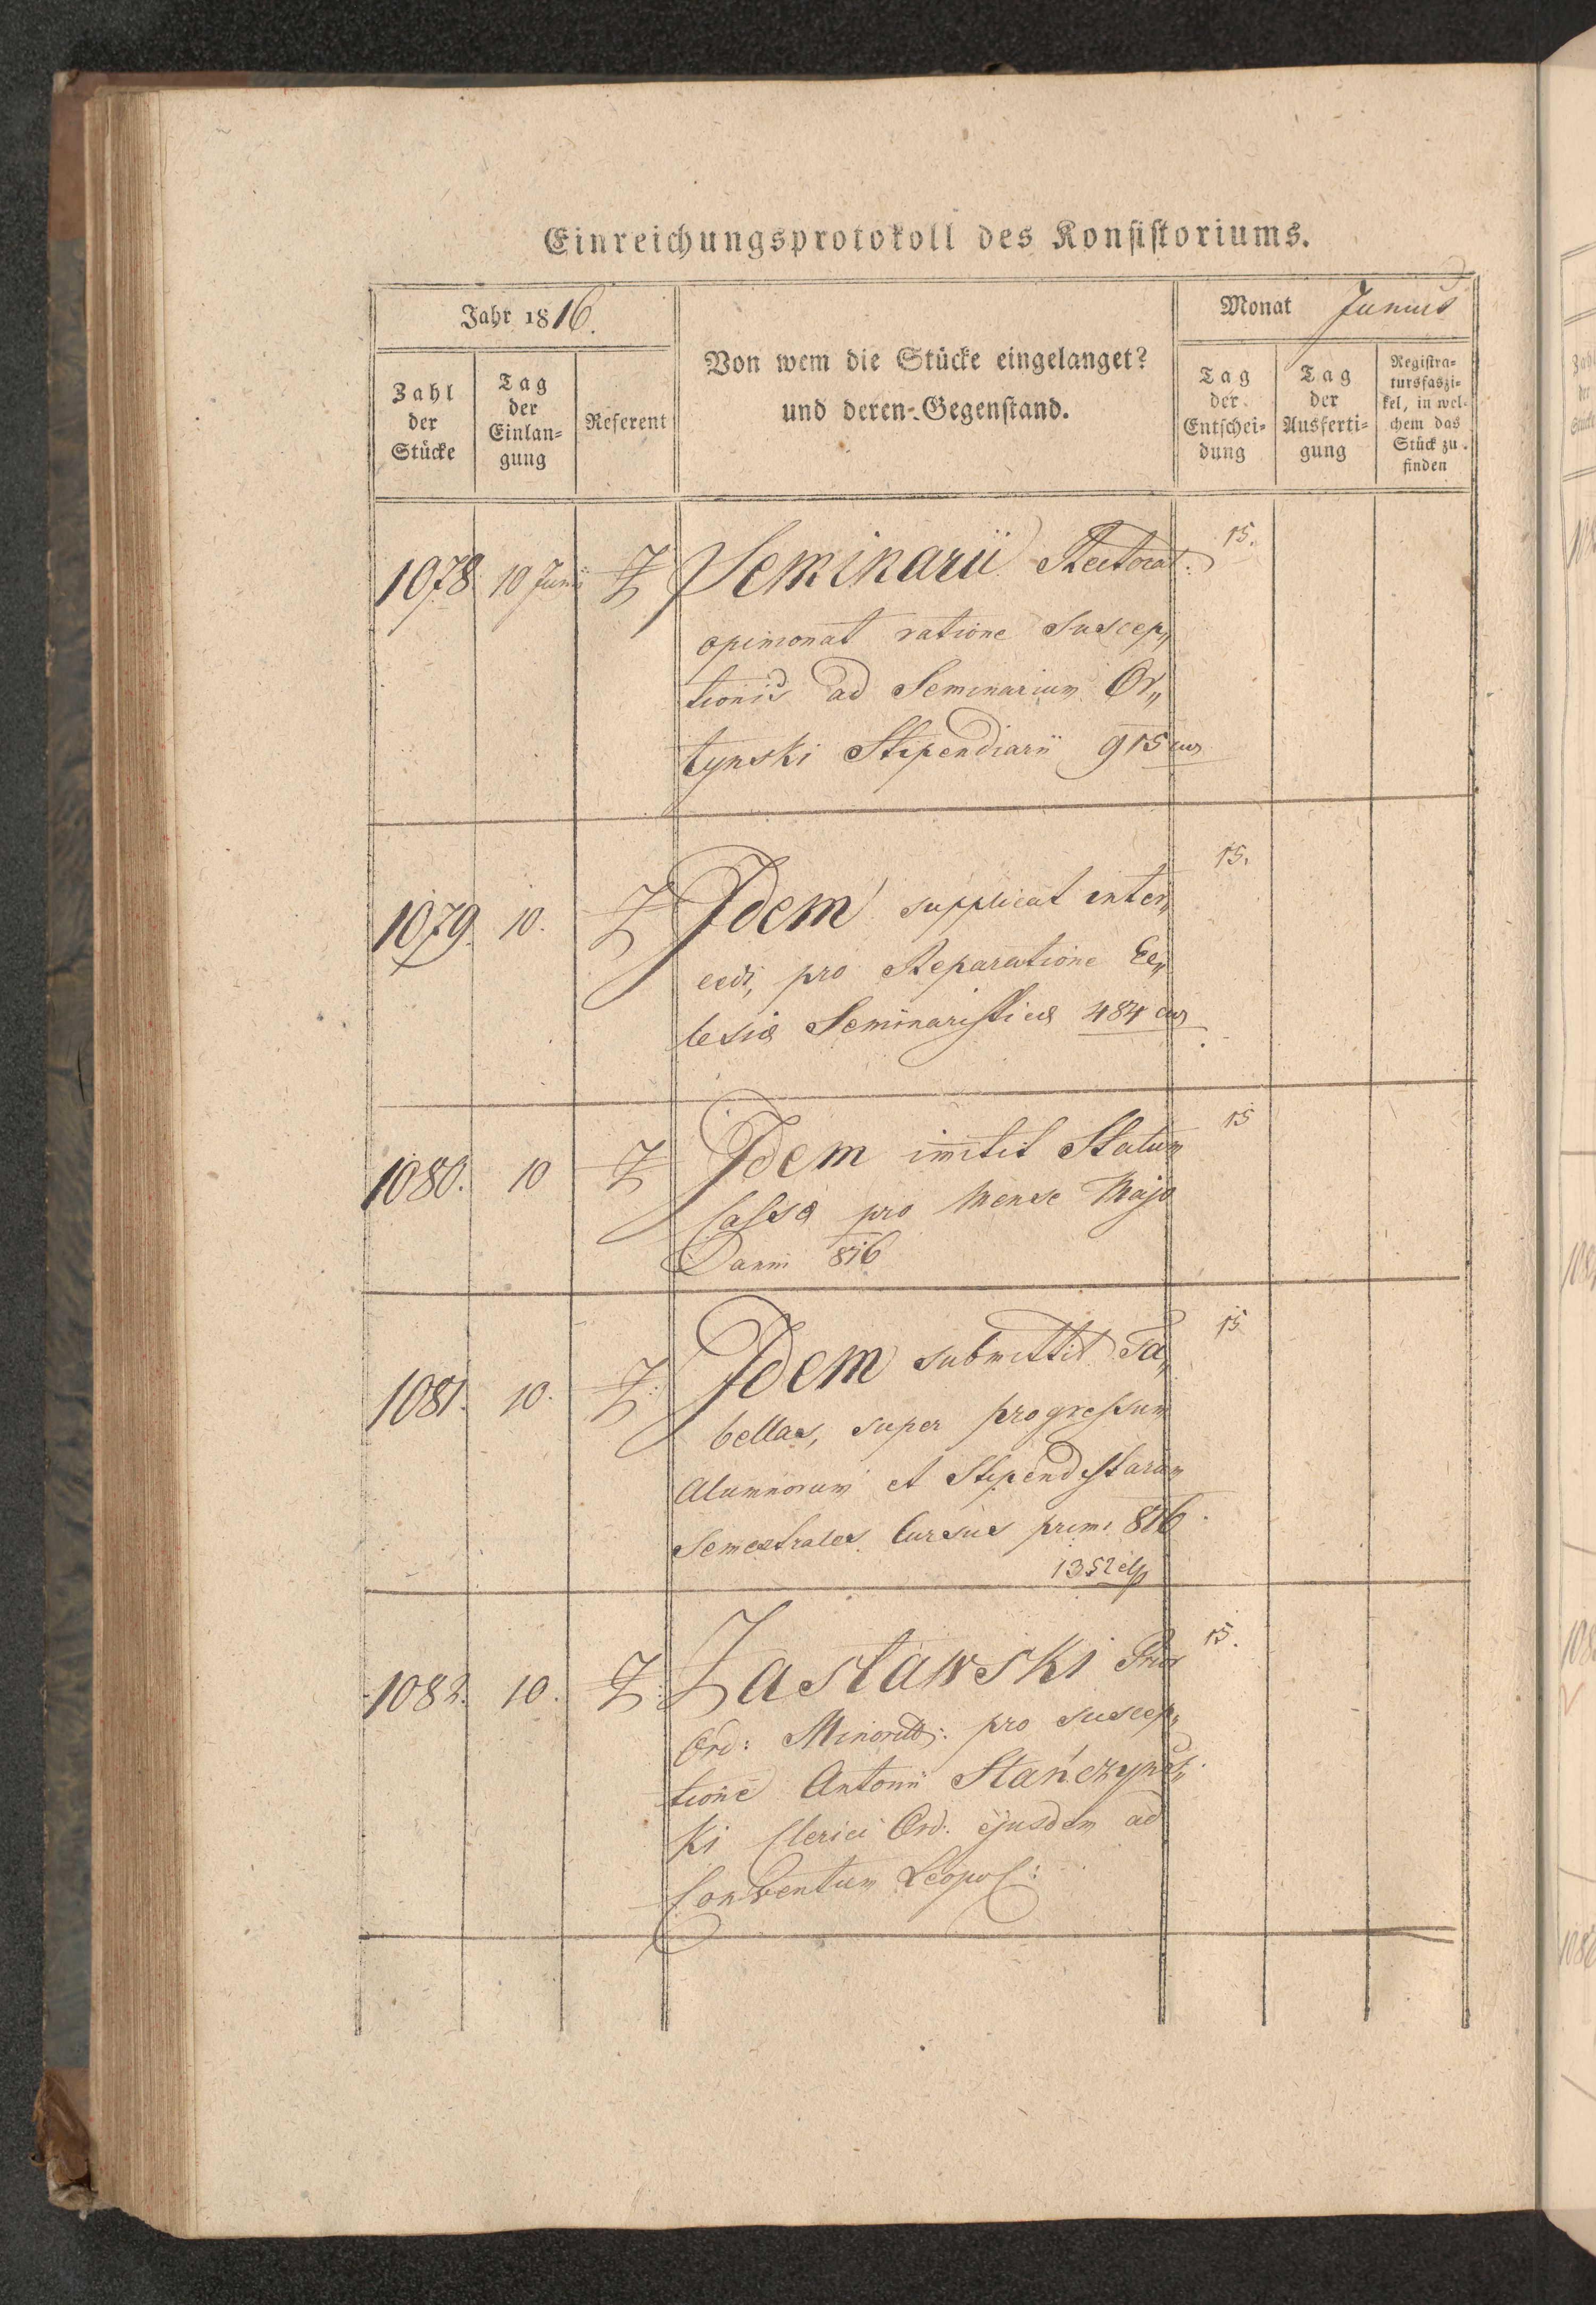 Einreichungsprotokoll des Konsistoriums.
Jahr 1816.
Monat Junius
Zahl der Stücke
Tag der Einlan=gung
Referent
Von wem die Stücke eingelanget?
und deren Gegenstand.
Tag der Entschei=dung
Tag der Ausferti=gung
Registra=tursfaszi=kel, in wel=chem das Stück zu finden
1078 10 Junii Z Seminarii Rectorat: 15.
opinionat ratione Suscep„
tionis ad Seminarium Or„
tynski Stipendiarii 915
1079. 10. Z Idem supplicat inter„ 15.
cedi, pro Reparatione Ec„
lesiæ Seminaristicæ 484
1080. 10 Z Idem imitit Statum 15
Cassæ pro Mense Majo
Danni 816
1081. 10. Z: Idem submittit Ta„ 15
bellas, super progressum
Alumnorum et Stipendistarum
Semestrales Cursus primi 816
1352
1082. 10. Z: Zasławski Prior 15.
Ord: Minoritt: pro suscep„
tione Antonii Stańczyńs„
ki Clerici Ord: ejusdem ad
Conventum Leopol: